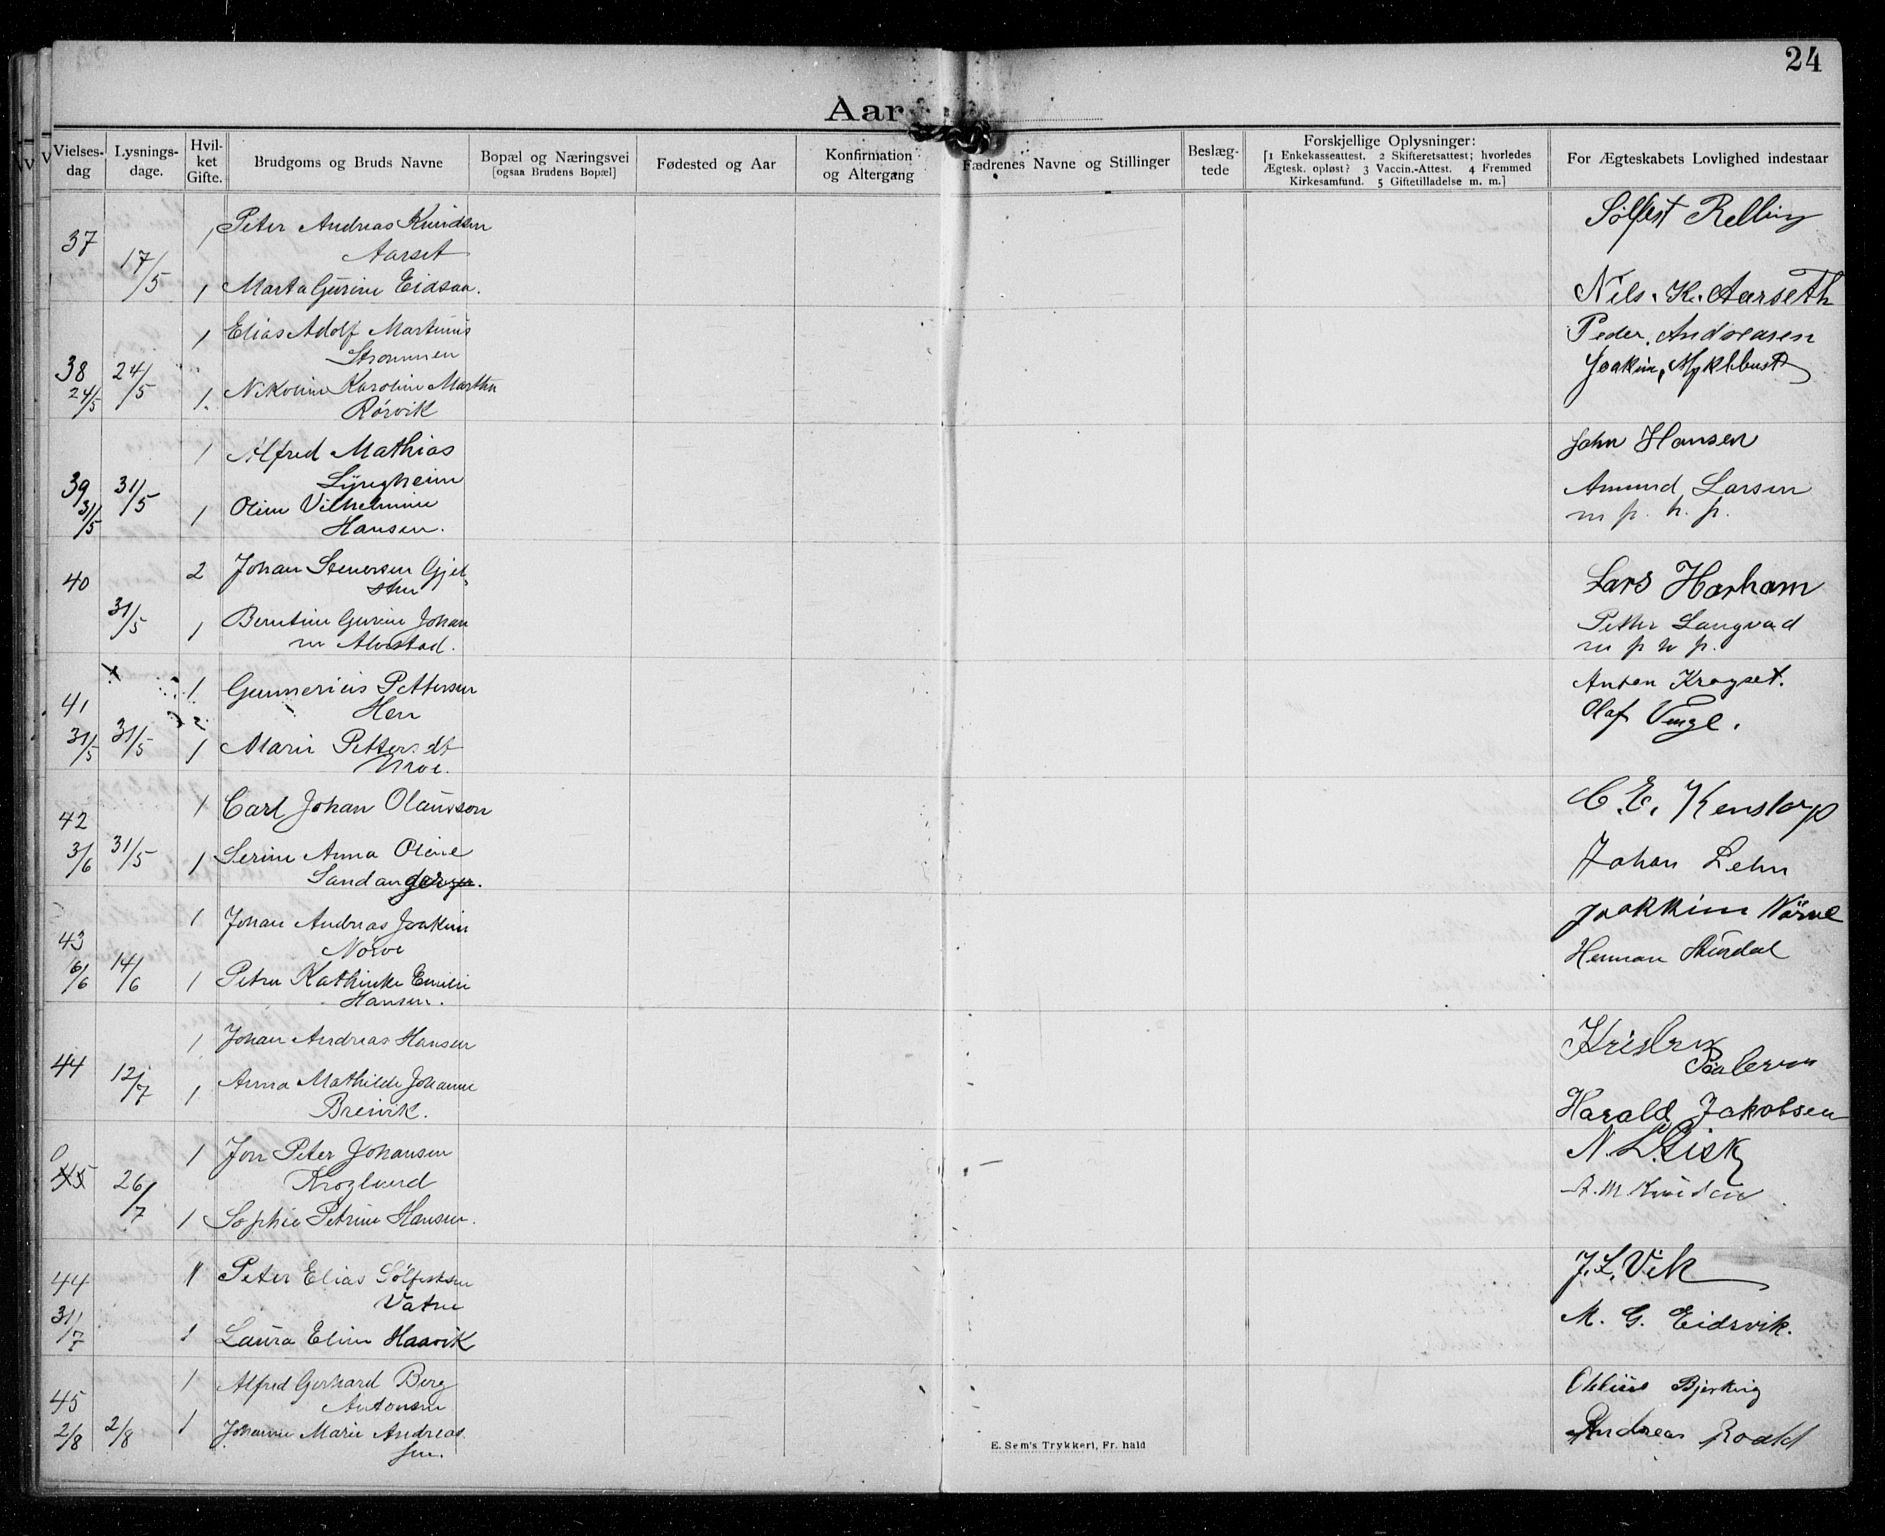 24
Aar
Vielses-
dag
Lysnings-
dage.
Hvil-
ket
Gifte.
Brudgoms og Bruds Navne
Bopæl og Næringsvei
[ogsaa Brudens Bopæl]
Fødested og Aar
Konfirmation
og Altergang
Fædrenes Navne og Stillinger
Beslæg-
tede
Forskjellige Oplysninger:
[1 Enkekasseattest. 2 Skifteretsattest; hvorledes
Ægtesk. opløst? 3 Vaccin.-Attest. 4 Fremmed
Kirkesamfund. 5 Giftetilladelse m. m.]
For Ægteskabets Lovlighed indestaar
37 17/5
1 Peter Andreas Knudsen
Aarset
Sølfest Relling
1 Marta Gurine Eidsaa.
Nils. K. Aarseth
1 Elias Adolf Martinus
Strømmen
Peder. Andreasen
38 24/5 24/5
1. Nikoline Karoline Martha
Rørvik
Joakim, Myklebust
1 Alfred Mathias
Lyngheim
John Hansen
39 31/5 31/5
1 Oline Vilhelmine
Hansen.
Amund Larsen
m. p. h. p.
40 31/5
2 Johan Stenersen Gjel-
sten
Lars Harham
1 Berntine Gurine Johan
ne Alvestad.
Petter Langvad
m p h p.
41 31/5 31/5
1 Gunnerius Pettersen
Hen
Anton Krogset.
1 Marie Pettersdt
Nrve.
Olaf Vinge.
42 3/6 31/5
1 Carl Johan Olausson
C. E. Kenstorp
1 Serine Anna Oline
Sandanger.
Johan Lehn
43 6/6 14/6
1 Johan Andreas Joakim
Nörve
Joakkim Nörve
1 Petra Kathinka Emilie
Hansen.
Herman Stendal
44 12/7
1 Johan Andreas Hansen
Kristen
Paulsen
1 Anna Mathilde Johanne
Breivik.
Harald Jakobsen
0 45 26/7
1 Jon Peter Johansen
Kroglund
N. L. Risk
1 Sophie Petrine Hansen.
A. M. Knudsen
44 31/7
1 Peter Elias Sölfestsen
Vatne
J. L. Vik
1 Laura Eline Haavik
M. G. Eidsvik.
45 2/8 2/8
1 Alfred Gerhard Berg
Antonsen
Bjerkvig
1 Johanne Marie Andreas
sen.
Andreas Roald
E. Sem's Trykkeri, Fr. hald